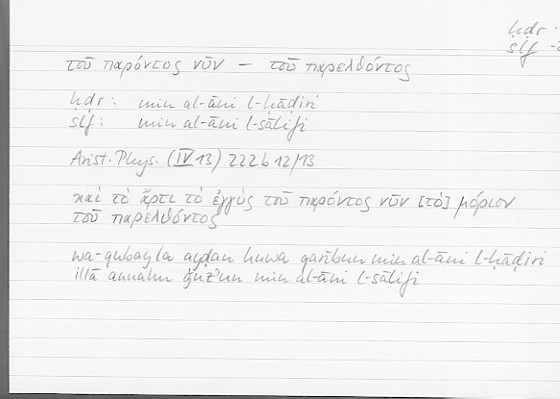 ḥḍr -
slf -
τοῦ παρόντος νῦν — τοῦ παρελθόντος
ḥḍr: min al-āni l-ḥāḍiri
slf: min al-āni l-sālifi
Arist. Phys. (IV 13) 222b12/13
καὶ τὸ ἄρτι τὸ ἐγγὺς τοῦ παρόντος νῦν [τὸ] μόριον
τοῦ παρελθόντος
wa-qubayla ayḍan huwa qarībun min al-āni l-ḥāḍiri
illā annahu ǧuz'un min al-āni l-sālifi